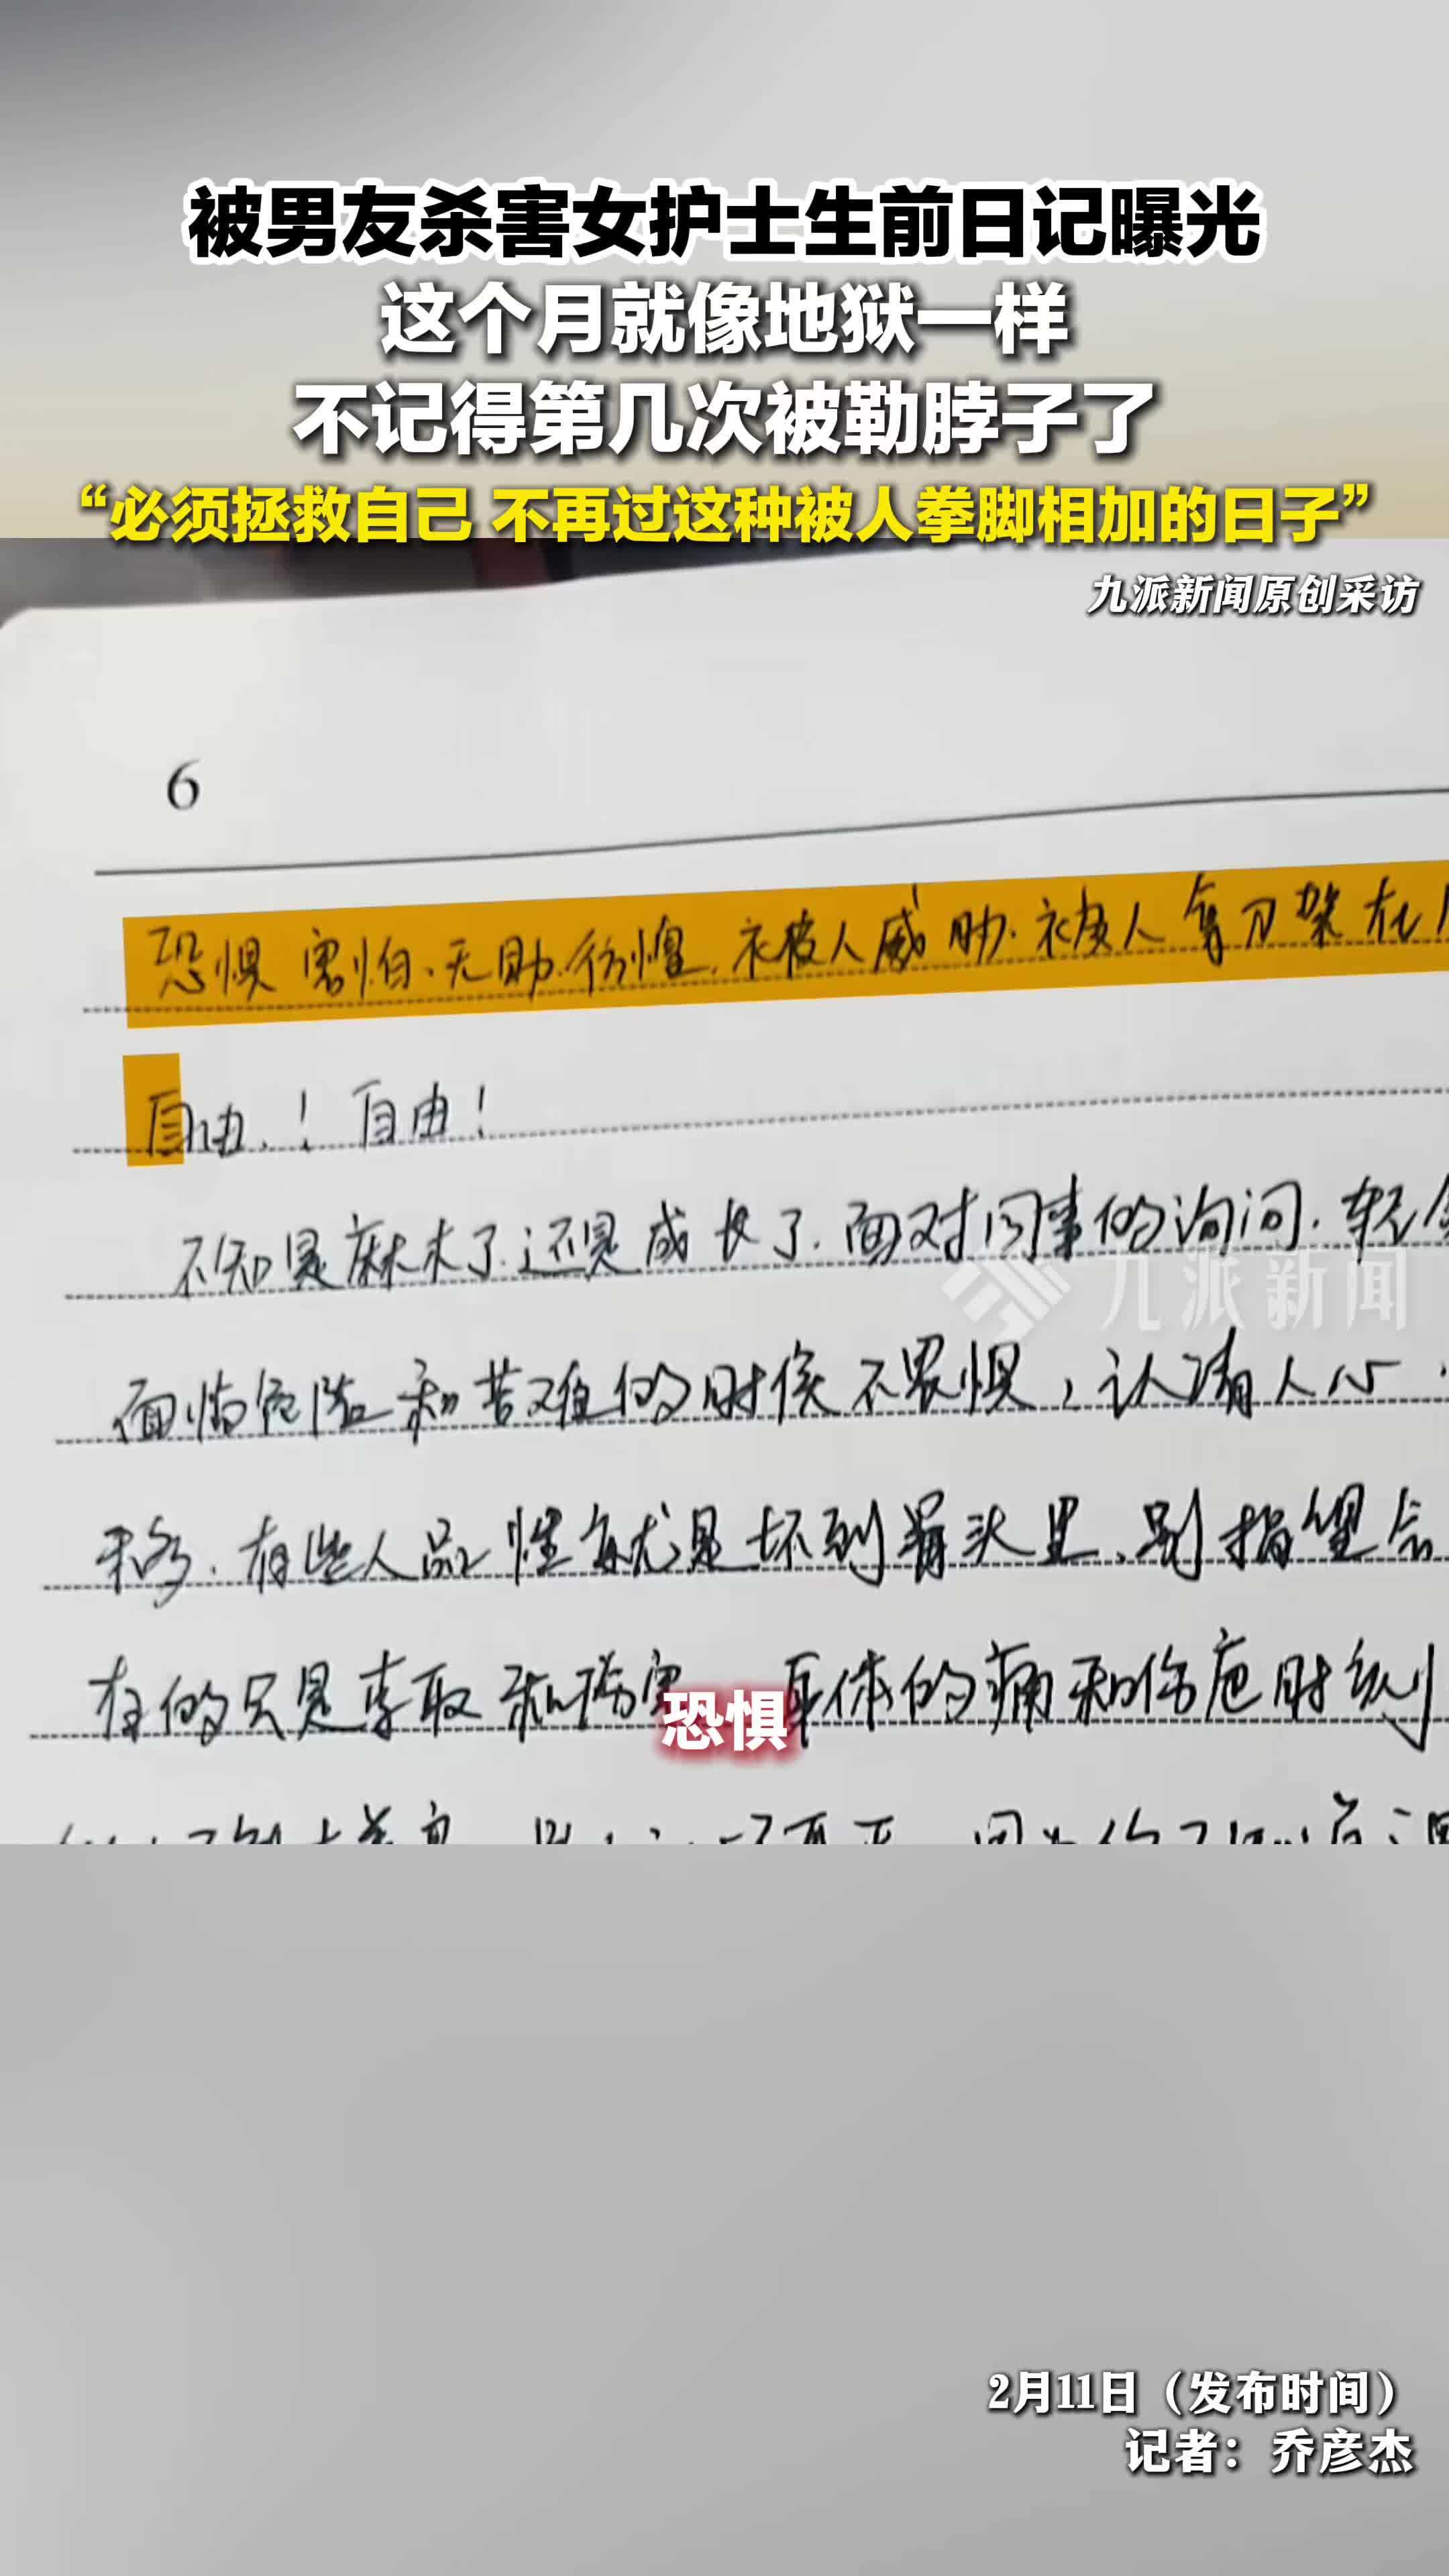 被男友杀害女护士生前日记曝光
这个月就像地狱一样
不记得第几次被勒脖子了
“必须拯救自己 不再过这种被人拳脚相加的日子”
九派新闻原创采访
6
恐惧 害怕、无助、彷惶、被人威胁、被人拿刀架在
自由、！自由！
不知是麻木了还是成长了、面对同事的询问、
九派新闻
面临危险和苦难的时候不畏惧，认清人心
有些人品性就是坏到骨头里、别指望
在的只是李取和伤害 身体的痛和伤疤时刻
恐惧
2月11日（发布时间）
记者：乔彦杰